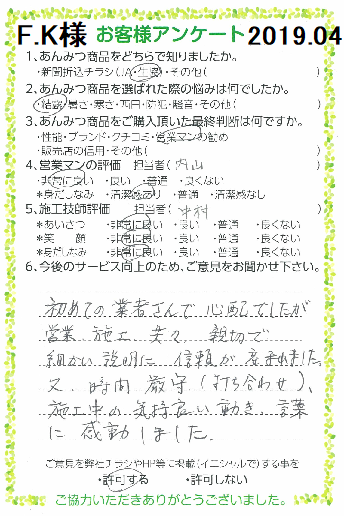 F.K様 お客様アンケート 2019.04
1、あんみつ商品をどちらで知りましたか。
・新聞折込チラシ(JA・生協)・その他( )
2、あんみつ商品を選ばれた際の悩みは何でしたか。
・結露・暑さ・寒さ・西日・防犯・騒音・その他( )
3、あんみつ商品をご購入頂いた最終判断は何ですか。
・性能・ブランド・クチコミ・営業マンの勧め
・販売店の信用・その他( )
4、営業マンの評価 担当者( 内山 )
・非常に良い ・良い ・普通 ・良くない
*身だしなみ ・清潔感あり ・普通 ・清潔感なし
5、施工技師評価 担当者( 中村 )
*あいさつ ・非常に良い ・良い ・普通 ・良くない
*笑 顔 ・非常に良い ・良い ・普通 ・良くない
*身だしなみ ・非常に良い ・良い ・普通 ・良くない
6、今後のサービス向上のため、ご意見をお聞かせ下さい。
初めての業者さんで心配でしたが
営業 施工 共々 親切で
細かい説明に 信頼が 産まれました
又、時間 厳守(打ち合わせ)、
施工中の気持良い動き、言葉
に 感動しました。
ご意見を弊社チラシやHP等に掲載(イニシャルで)する事を
・許可する ・許可しない
ご協力いただきありがとうございました。